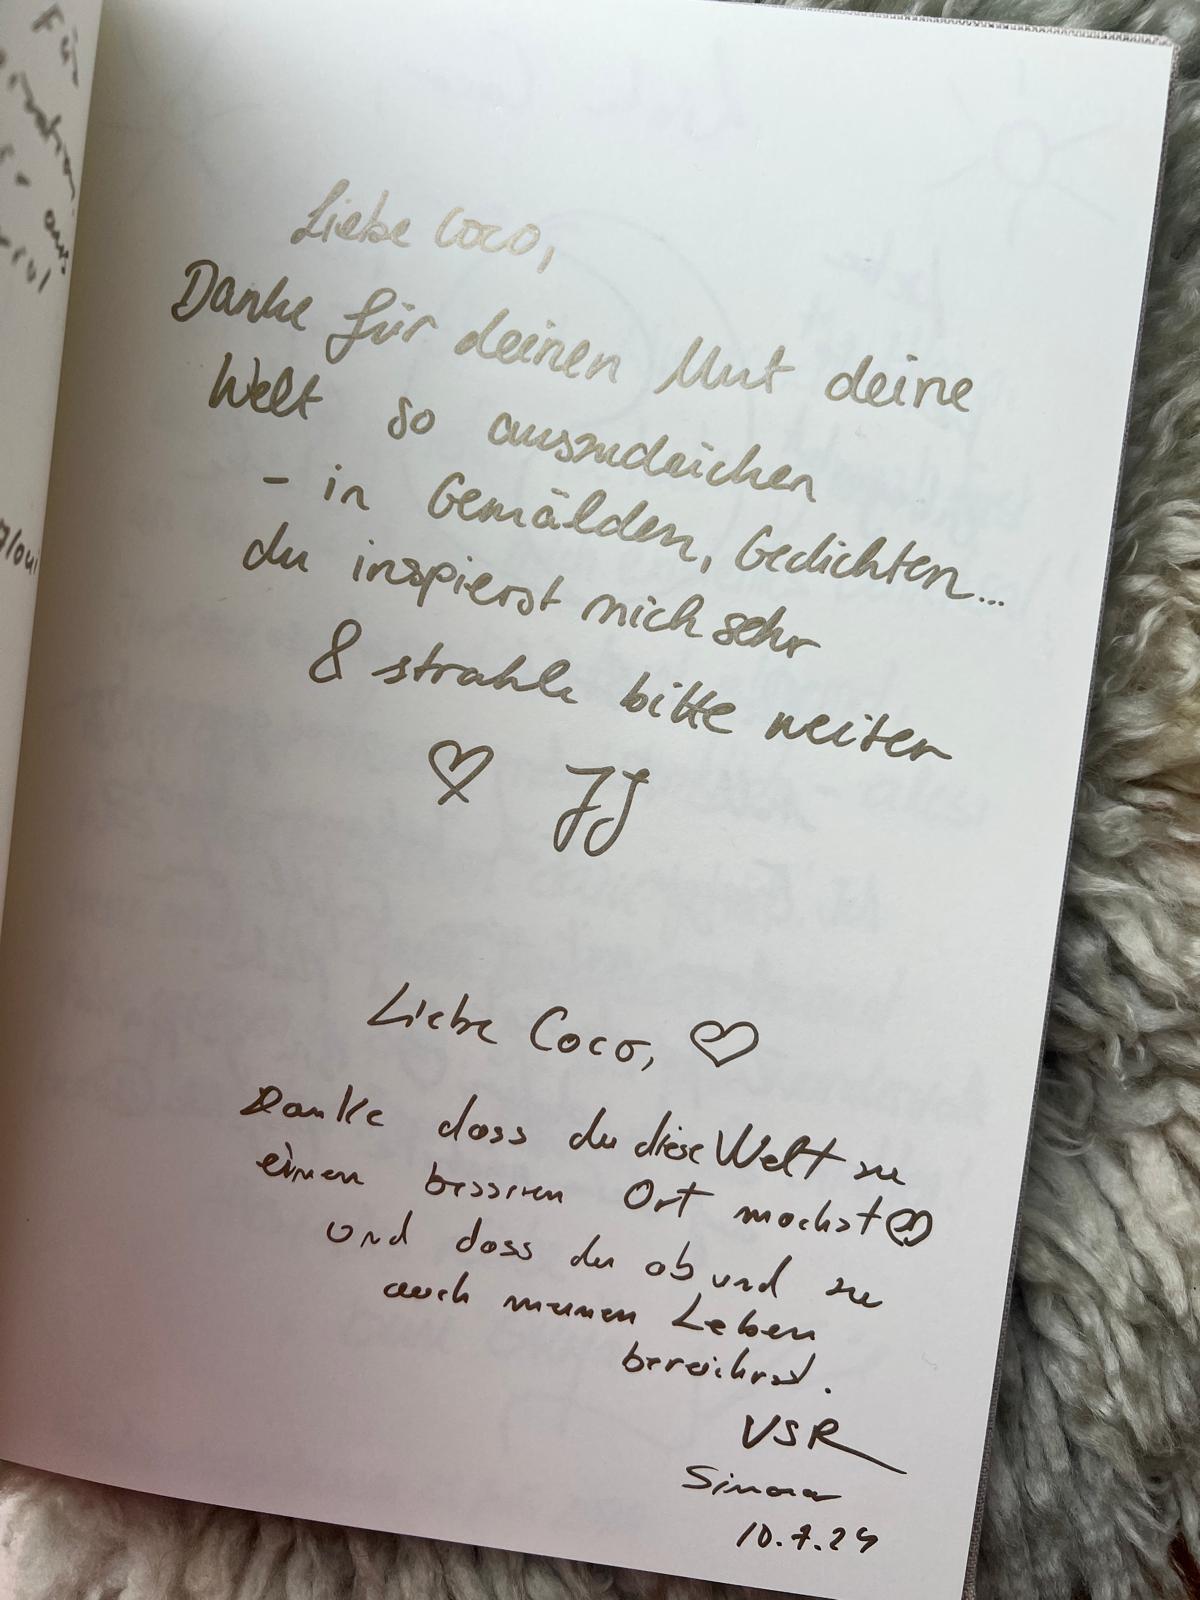 Für
aus
Liebe Coco,
Danke für deinen Mut deine
Welt so auszudrücken
- in Gemälden, Gedichten...
du inspierst mich sehr
& strahle bitte weiter
♡ JJ
Liebe Coco, ♡
Danke dass du diese Welt zu
einen besseren Ort machst ♡
und dass du ab und zu
auch meinen Leben
bereicherst.
VSR
10.7.24